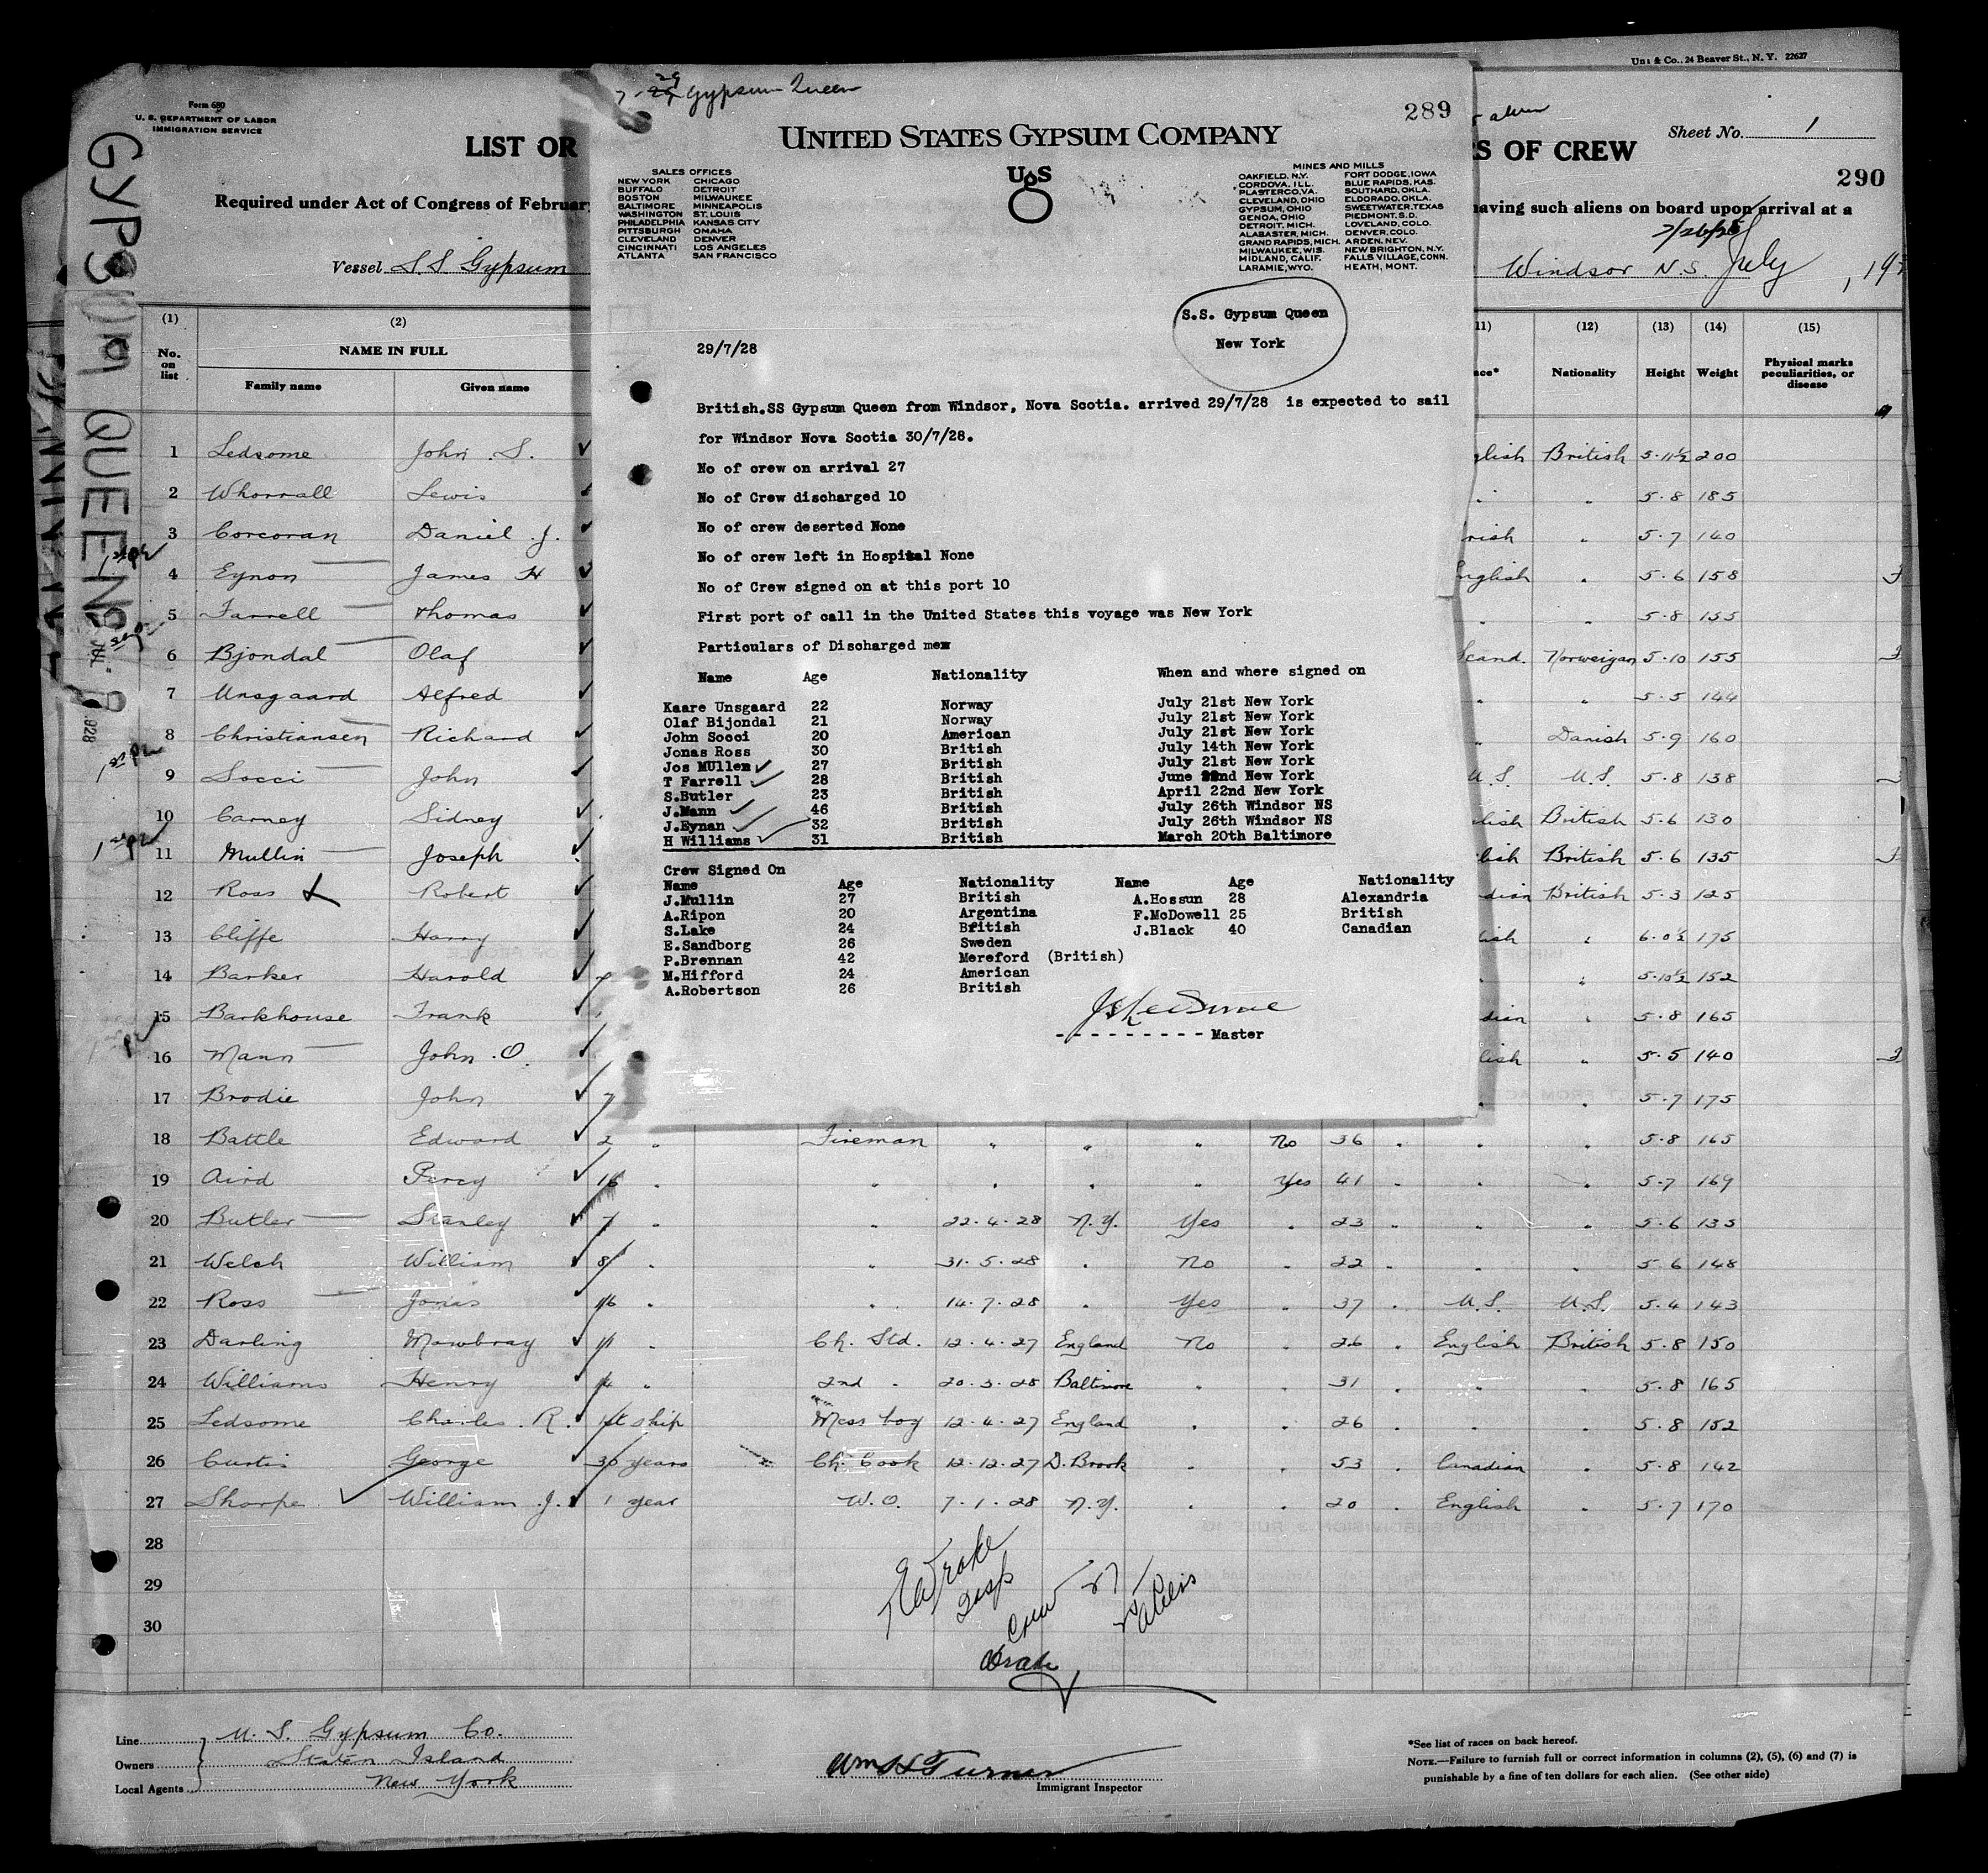 Uni & Co., 24 Beaver St., N. Y. 22627
Form 680
U. S. DEPARTMENT OF LABOR
IMMIGRATION SERVICE
LIST OR
RS OF CREW
Sheet No. 1
290
Required under Act of Congress of Februar
having such aliens on board upon arrival at a
Vessel S.S Gypsum
Windsor N.S. July , 19
GYPSUM QUEEN
Gypsum Queen
289
UNITED STATES GYPSUM COMPANY
USG
SALES OFFICES
NEW YORK CHICAGO
BUFFALO DETROIT
BOSTON MILWAUKEE
BALTIMORE MINNEAPOLIS
WASHINGTON ST. LOUIS
PHILADELPHIA KANSAS CITY
PITTSBURGH OMAHA
CLEVELAND DENVER
CINCINNATI LOS ANGELES
ATLANTA SAN FRANCISCO
MINES AND MILLS
OAKFIELD, N.Y. FORT DODGE, IOWA
CORDOVA, ILL. BLUE RAPIDS, KAS.
PLASTERCO, VA. SOUTHARD, OKLA.
CLEVELAND, OHIO ELDORADO, OKLA.
GYPSUM, OHIO SWEETWATER, TEXAS
GENOA, OHIO PIEDMONT, S.D.
DETROIT, MICH. LOVELAND, COLO.
ALABASTER, MICH. DENVER, COLO.
GRAND RAPIDS, MICH. ARDEN, NEV.
MILWAUKEE, WIS. NEW BRIGHTON, N.Y.
MIDLAND, CALIF. FALLS VILLAGE, CONN.
LARAMIE, WYO. HEATH, MONT.
S.S. Gypsum Queen
New York
29/7/28
British.SS Gypsum Queen from Windsor, Nova Scotia. arrived 29/7/28 is expected to sail
for Windsor Nova Scotia 30/7/28.
No of crew on arrival 27
No of Crew discharged 10
No of crew deserted None
No of crew left in Hospital None
No of Crew signed on at this port 10
First port of call in the United States this voyage was New York
Particulars of Discharged men
Name Age Nationality When and where signed on
Kaare Unsgaard 22 Norway July 21st New York
Olaf Bijondal 21 Norway July 21st New York
John Socci 20 American July 21st New York
Jonas Ross 30 British July 14th New York
Jos MUllen 27 British July 21st New York
T Farrell 28 British June 22nd New York
S.Butler 23 British April 22nd New York
J.Mann 46 British July 26th Windsor NS
J.Eynan 32 British July 26th Windsor NS
H Williams 31 British March 20th Baltimore
Crew Signed On
Name Age Nationality Name Age Nationality
J.Mullin 27 British A.Hossun 28 Alexandria
A.Ripon 20 Argentina F.McDowell 25 British
S.Lake 24 British J.Black 40 Canadian
E.Sandborg 26 Sweden
P.Brennan 42 Mereford (British)
M.Hifford 24 American
A.Robertson 26 British
- - - - - - - - - - Master
(1) (2) 11) (12) (13) (14) (15)
No. on list NAME IN FULL Nationality Height Weight Physical marks peculiarities, or disease
Family name Given name
1 Ledsome John .S. glish British 5-11½ 200
2 Whorrall Lewis " " 5-8 185
3 Corcoran Daniel .J. rish " 5-7 140
4 Eynon James H English " 5-6 158
5 Farrell Thomas " " 5-8 155
6 Bjondal Olaf Scand. Norweigan 5-10 155
7 Unsgaard Alfred " " 5-5 144
8 Christiansen Richard " Danish 5-9 160
9 Socci John U.S. U.S. 5-8 138
10 Carney Sidney lish British 5-6 130
11 Mullin Joseph lish British 5-6 135
12 Ross Robert dian British 5-3 125
13 Cliffe Harry lish " 6-0½ 175
14 Barker Harold " " 5-10½ 152
15 Barkhouse Frank dian " 5-8 165
16 Mann John .O. lish " 5-5 140
17 Brodie John 7 " " 5-7 175
18 Battle Edward 2 " Fireman " " " No 36 " " " 5-8 165
19 Aird Percy 16 " " " " " Yes 41 " " " 5-7 169
20 Butler Stanley 7 " " 22-4-28 N.Y. Yes " 23 " " " 5-6 135
21 Welch William 8 " " 31-5-28 " No " 22 " " " 5-6 148
22 Ross Jonas 16 " " 14-7-28 " Yes " 37 " U.S. U.S. 5-4 143
23 Darling Mowbray 11 " Ch. Std. 12-4-27 England No " 26 " English British 5-8 150
24 Williams Henry 14 " 2nd " 20-3-28 Baltimore " " 31 " " " 5-8 165
25 Ledsome Charles .R. 1st ship Mess boy 12-4-27 England " " 26 " " " 5-8 152
26 Curtis George 30 years Ch. Cook 12-12-27 D. Brook " " 53 " Canadian " 5-8 142
27 Sharpe William .J. 1 year W.O. 7-1-28 N.Y. " " 20 " English " 5-7 170
28
29
30
Line U. S. Gypsum Co.
Owners Staten Island
Local Agents New York
Wm H Turner
Immigrant Inspector
*See list of races on back hereof.
NOTE.—Failure to furnish full or correct information in columns (2), (5), (6) and (7) is
punishable by a fine of ten dollars for each alien. (See other side)